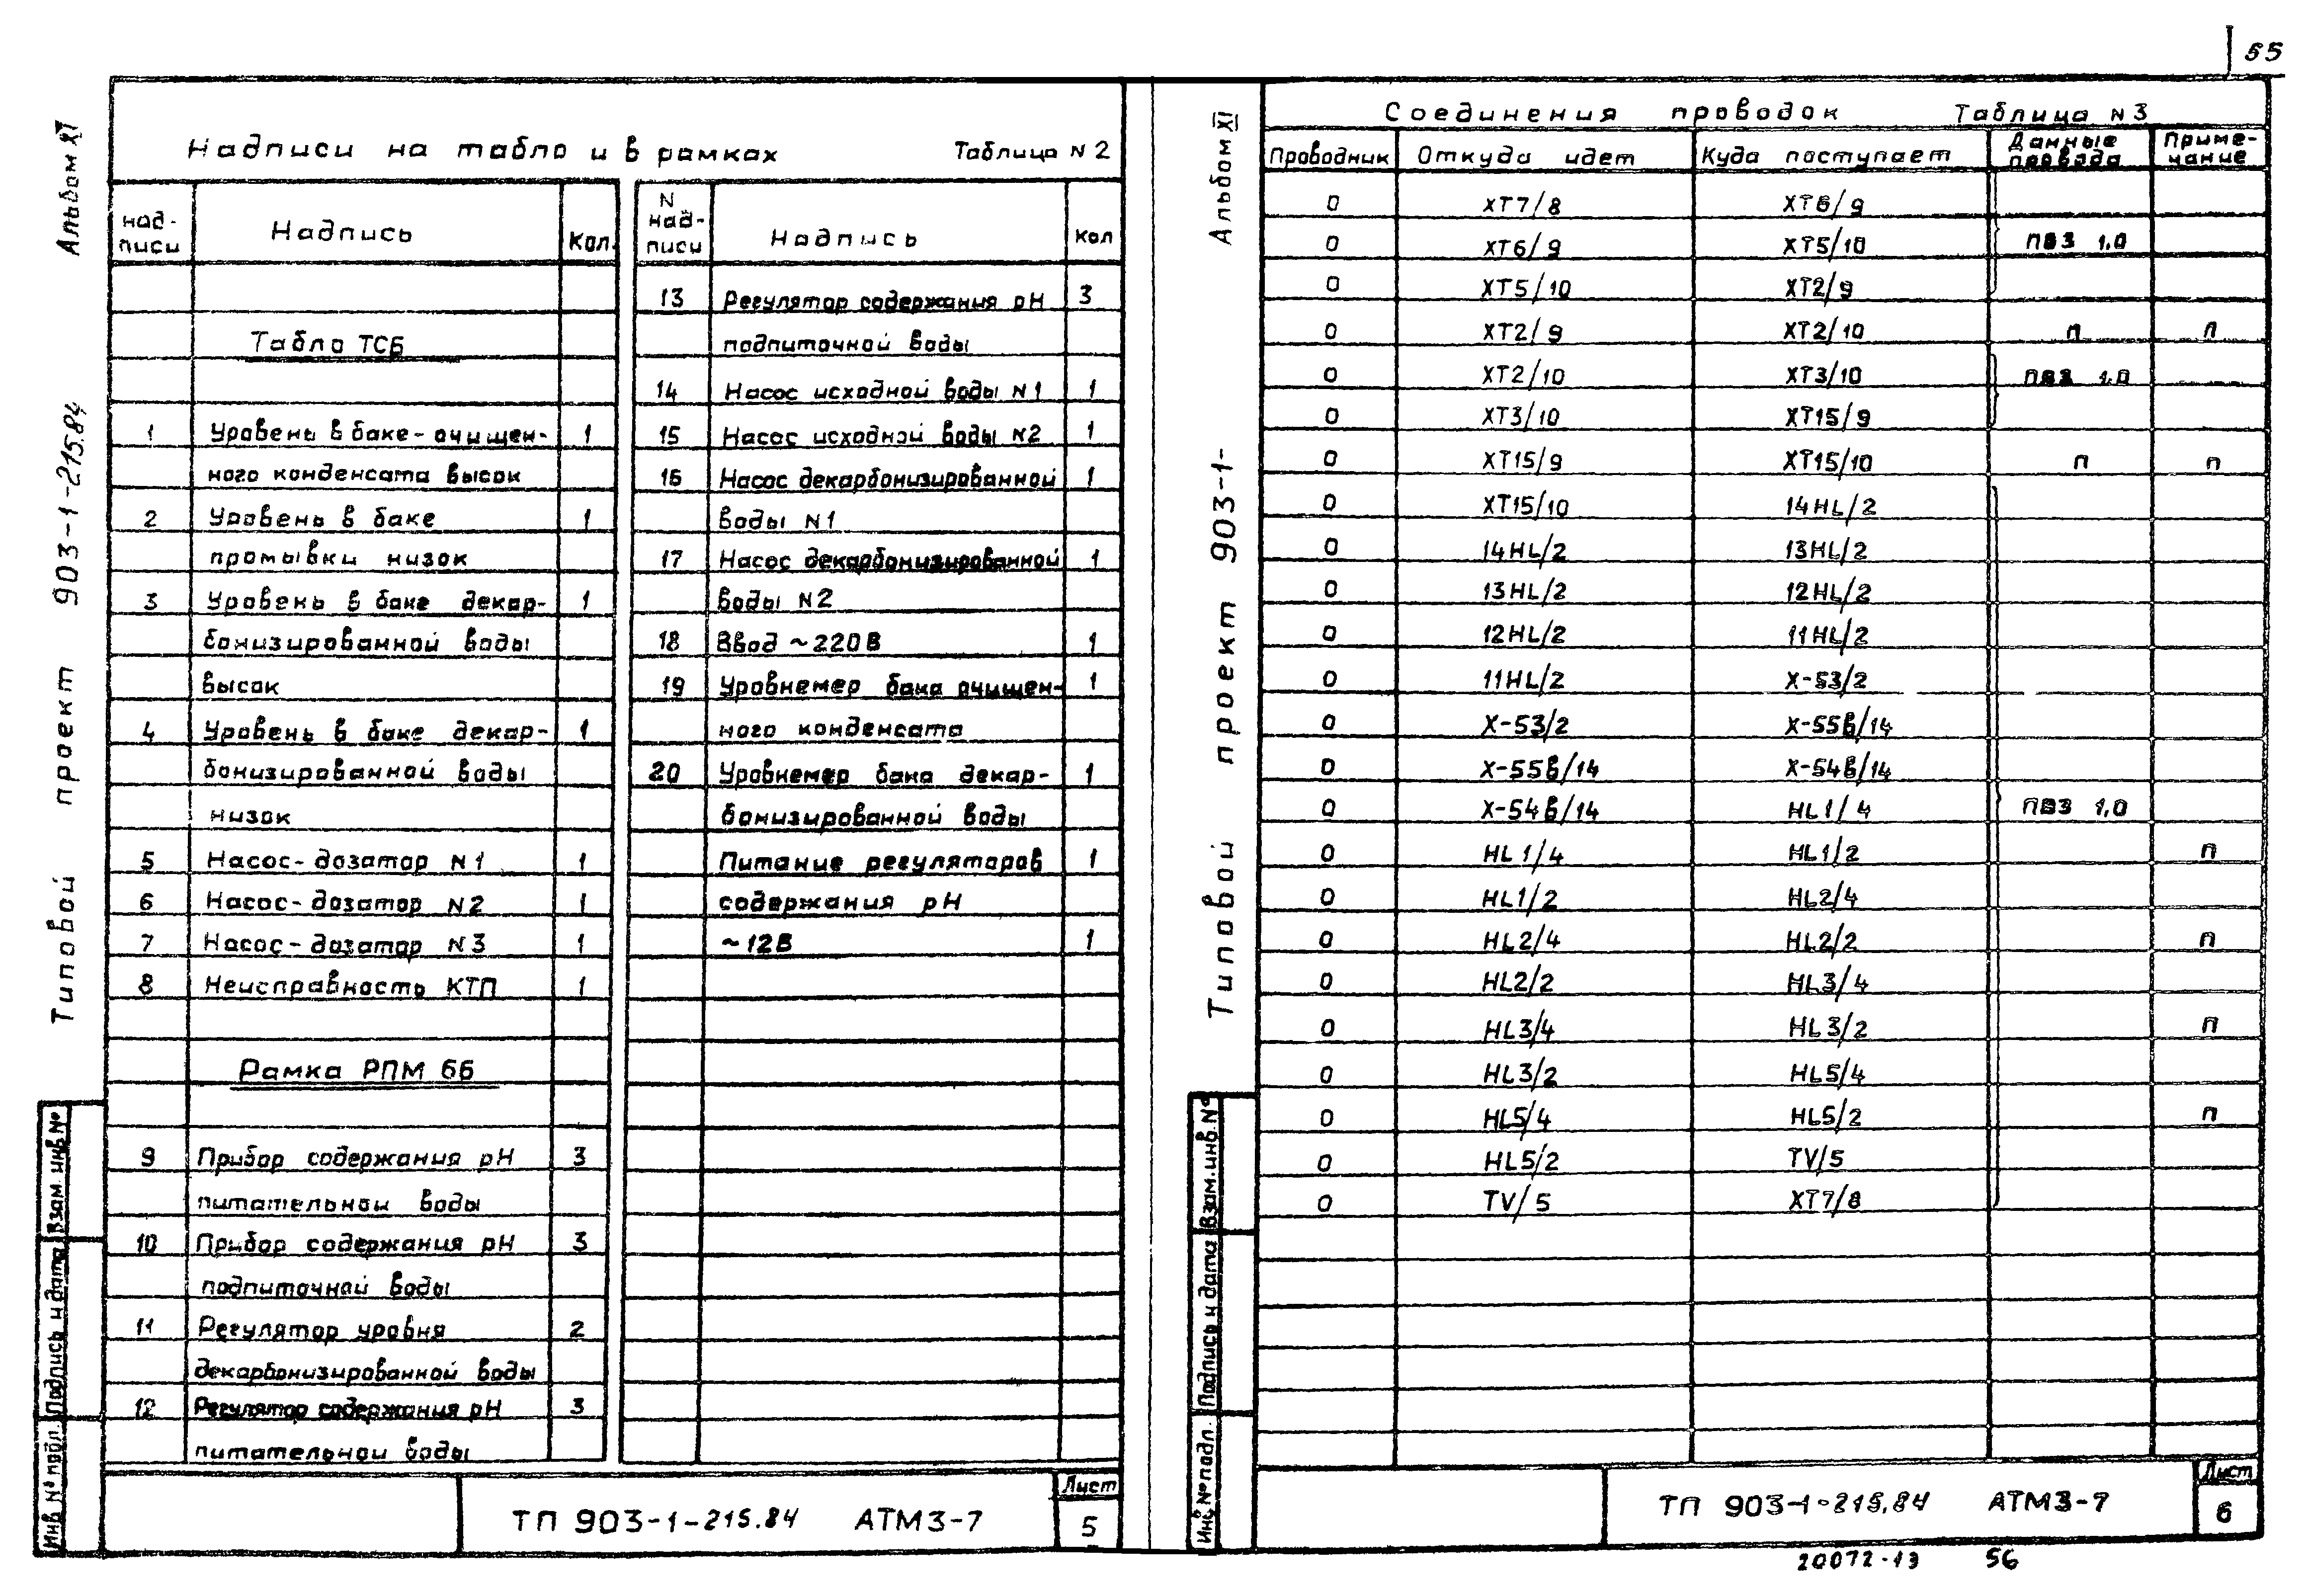 55
Альбом XI
Типовой проект 903-1-215.84
Надписи на табло и в рамках Таблица N 2
над-писи Надпись Кол.
Табло ТСБ
1 Уровень в баке-очищен- 1
ного конденсата высок
2 Уровень в баке 1
промывки низок
3 Уровень в баке декар- 1
бонизированной воды
высок
4 Уровень в баке декар- 1
бонизированной воды
низок
5 Насос-дозатор N1 1
6 Насос-дозатор N2 1
7 Насос-дозатор N3 1
8 Неисправность КТП 1
Рамка РПМ 66
9 Прибор содержания pH 3
питательной воды
10 Прибор содержания pH 3
подпиточной воды
11 Регулятор уровня 2
декарбонизированной воды
12 Регулятор содержания pH 3
питательной воды
N над-писи Надпись Кол
13 Регулятор содержания pH 3
подпиточной воды
14 Насос исходной воды N1 1
15 Насос исходной воды N2 1
16 Насос декарбонизированной 1
воды N1
17 Насос декарбонизированной 1
воды N2
18 Ввод ~220В 1
19 Уровнемер бака очищен- 1
ного конденсата
20 Уровнемер бака декар- 1
бонизированной воды
Питание регуляторов 1
содержания pH
~12В 1
Инв № подл. Подпись и дата Взам. инв №
ТП 903-1-215.84 АТМ3-7
Лист
5
Альбом XI
Типовой проект 903-1-
Соединения проводок Таблица N3
Проводник Откуда идет Куда поступает Данные провода Приме-чание
0 XT7/8 XT6/9
0 XT6/9 XT5/10 ПВ3 1,0
0 XT5/10 XT2/9
0 XT2/9 XT2/10 П П
0 XT2/10 XT3/10 ПВ3 1,0
0 XT3/10 XT15/9
0 XT15/9 XT15/10 П П
0 XT15/10 14HL/2
0 14HL/2 13HL/2
0 13HL/2 12HL/2
0 12HL/2 11HL/2
0 11HL/2 X-53/2
0 X-53/2 X-55в/14
0 X-55в/14 X-54в/14
0 X-54в/14 HL1/4 ПВ3 1,0
0 HL1/4 HL1/2 П
0 HL1/2 HL2/4
0 HL2/4 HL2/2 П
0 HL2/2 HL3/4
0 HL3/4 HL3/2 П
0 HL3/2 HL5/4
0 HL5/4 HL5/2 П
0 HL5/2 TV/5
0 TV/5 XT7/8
Инв № подл. Подпись и дата Взам. инв №
ТП 903-1-215.84 АТМ3-7
Лист
6
20072-13 56